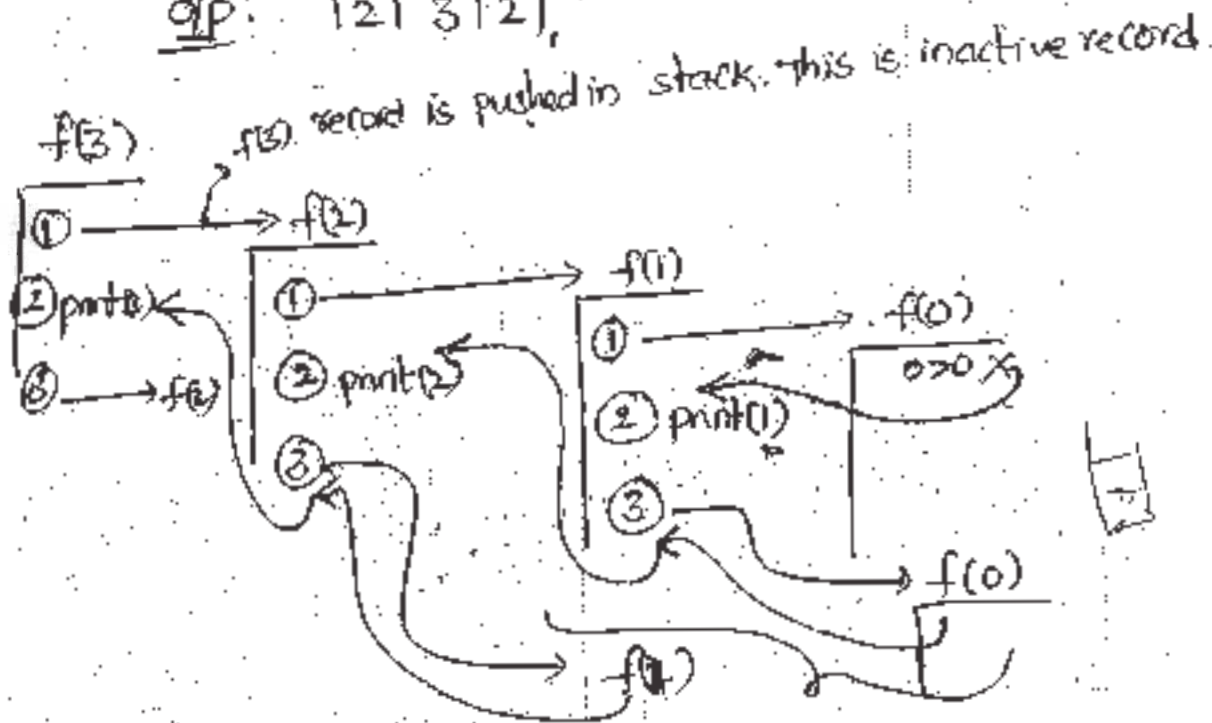 o/p: 121 3121,
f(3) record is pushed in stack. this is inactive record.
f(3)
① → f(2)
② print(3)
③ → f(2)
① → f(1)
② print(2)
③
① → f(0)
② print(1)
③
0>0 X
f(0)
f(1)